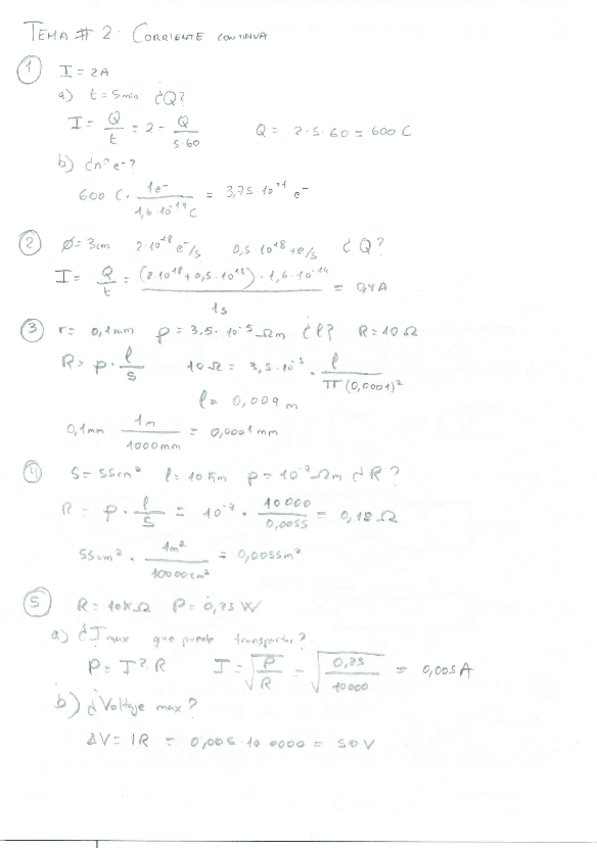 TEMA # 2: CORRIENTE CONTINUA
① I = 2A
a) t = 5min ¿Q?
I = Q/t = 2 = Q/5·60 Q = 2·5·60 = 600 C
b) ¿nº e-?
600 C · 1e-/1,6·10^-19 C = 3,75·10^21 e-
② Ø = 3cm 2·10^18 e-/s 0,5·10^18 +e/s ¿Q?
I = Q/t = (2·10^18 + 0,5·10^18)·1,6·10^-19/1s = 0,4 A
③ r = 0,1mm ρ = 3,5·10^-5 Ωm ¿l? R = 10 Ω
R = ρ · l/S 10 Ω = 3,5·10^-5 · l/π(0,0001)²
l = 0,009 m
0,1mm 1m/1000mm = 0,0001 mm
④ S = 55cm² l = 10 Km ρ = 10^-7 Ωm ¿R?
R = ρ · l/S = 10^-7 · 10000/0,0055 = 0,18 Ω
55cm² · 1m²/10000cm² = 0,0055m²
⑤ R = 10KΩ P = 0,25 W
a) ¿I max que puede transportar?
P = I²·R I = √P/R = √0,25/10000 = 0,005 A
b) ¿Voltaje max?
ΔV = IR = 0,005·10 0000 = 50 V